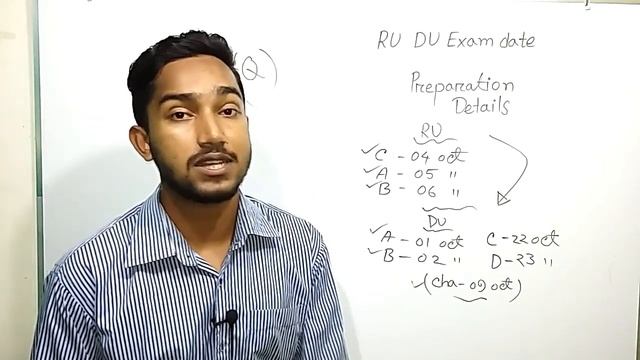 (Q)
RU DU Exam date
Preparation
Details
RU
C - 04 oct
A - 05 "
B - 06 "
DU
A - 01 oct C - 22 oct
B - 02 " D - 23 "
(Cha - 09 oct)